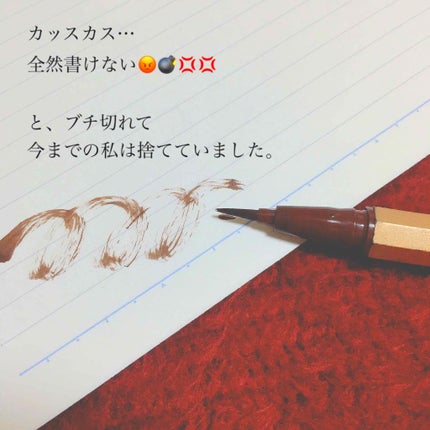 カッスカス…
全然書けない😡💣💢💢
と、ブチ切れて
今までの私は捨てていました。